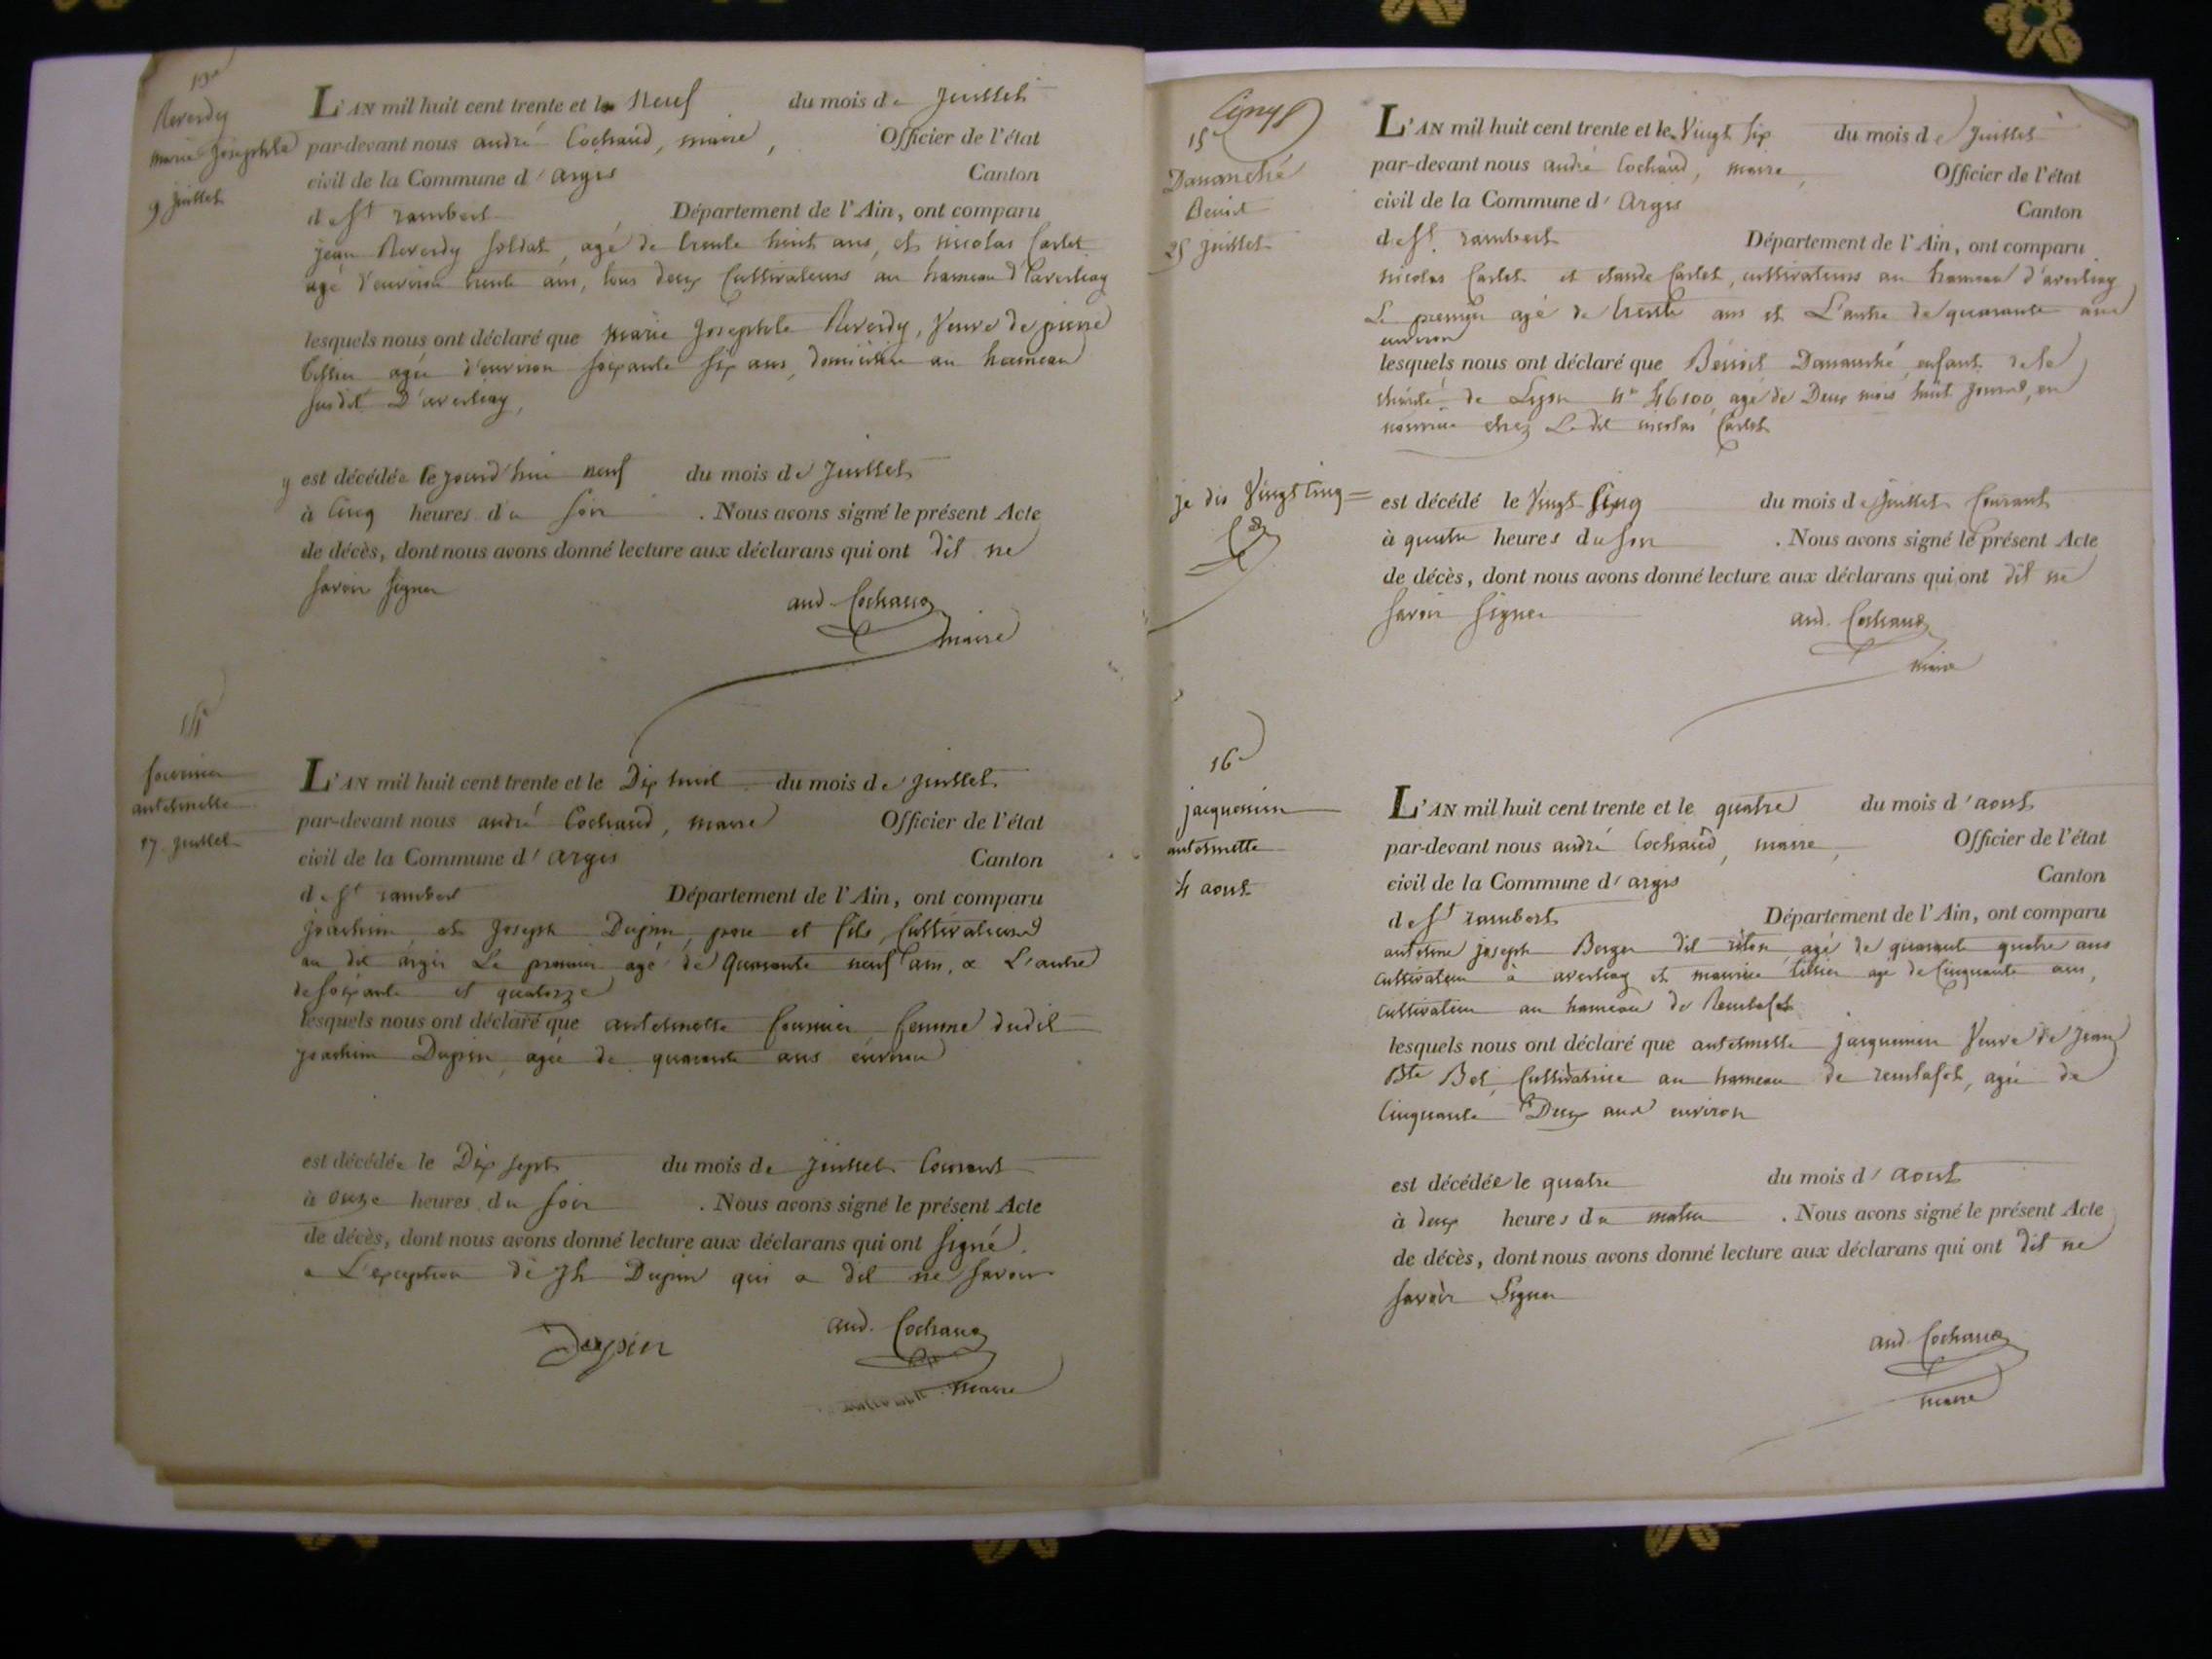 13e
Reverdy
marie Josephte
9 juillet
L'AN mil huit cent trente et le Neuf du mois de juillet
par-devant nous andré Cochaud, maire, Officier de l'état
civil de la Commune d'argis Canton
de St rambert Département de l'Ain, ont comparu
jean Reverdy soldat, agé de trente huit ans, et nicolas Carlet
agé d'environ trente ans, tous deux Cultivateurs au hameau d'averliay
lesquels nous ont déclaré que marie Josephte Reverdy, Veuve de pierre
tissier agée d'environ soixante six ans, domiciliée au hameau
susdit D'averliay,
est décédée le jourd'hui neuf du mois de Juillet
à Cinq heures du soir . Nous avons signé le présent Acte
de décès, dont nous avons donné lecture aux déclarans qui ont dit ne
savoir signer
and. Cochaud
maire
14e
fournier
anthelmette
17 juillet
L'AN mil huit cent trente et le Dix huit du mois de juillet
par-devant nous andré Cochaud, maire Officier de l'état
civil de la Commune d'argis Canton
de St rambert Département de l'Ain, ont comparu
joachim et Joseph Dupin, pere et fils, Cultivateurs
au dit argis Le premier agé de Quarante neuf ans, & L'autre
de soixante et quatorze
lesquels nous ont déclaré que anthelmette fournier femme dudit
joachim Dupin, agée de quarante ans environ
est décédée le Dix sept du mois de juillet Courant
à onze heures du soir . Nous avons signé le présent Acte
de décès, dont nous avons donné lecture aux déclarans qui ont signé.
a L'exception de Jh Dupin qui a dit ne savoir
Dupin
and. Cochaud
maire
15e
Dananché
Benoit
25 juillet
L'AN mil huit cent trente et le Vingt six du mois de Juillet
par-devant nous andré Cochaud, maire, Officier de l'état
civil de la Commune d'Argis Canton
de St. rambert Département de l'Ain, ont comparu
nicolas Carlet et claude Carlet, cultivateurs au hameau d'averliay
Le premier agé de trente ans et L'autre de quarante ans
environ
lesquels nous ont déclaré que Bénoit Dananché, enfant de la
charité de Lyon no 46100, agé de Deux mois huit jours, en
nourrice chez Le dit nicolas Carlet
je dis Vingt Cinq =
est décédé le Vingt Cinq du mois de juillet Courant
à quatre heures du soir . Nous avons signé le présent Acte
de décès, dont nous avons donné lecture aux déclarans qui ont dit ne
savoir signer
and. Cochaud
maire
16e
jacquemin
anthelmette
4 aout
L'AN mil huit cent trente et le quatre du mois d'aout
par-devant nous andré Cochaud, maire, Officier de l'état
civil de la Commune d'argis Canton
de St rambert Département de l'Ain, ont comparu
antelme joseph Berger dit agé de quarante quatre ans
cultivateur à averliay et maurice tissier agé de Cinquante ans,
cultivateur au hameau de Reculafol
lesquels nous ont déclaré que anthelmette jacquemin Veuve de Jean
Bte Bol, Cultivatrice au hameau de reculafol, agée de
Cinquante Deux ans environ
est décédée le quatre du mois d'aout
à deux heures du matin . Nous avons signé le présent Acte
de décès, dont nous avons donné lecture aux déclarans qui ont dit ne
savoir Signer
and. Cochaud
maire